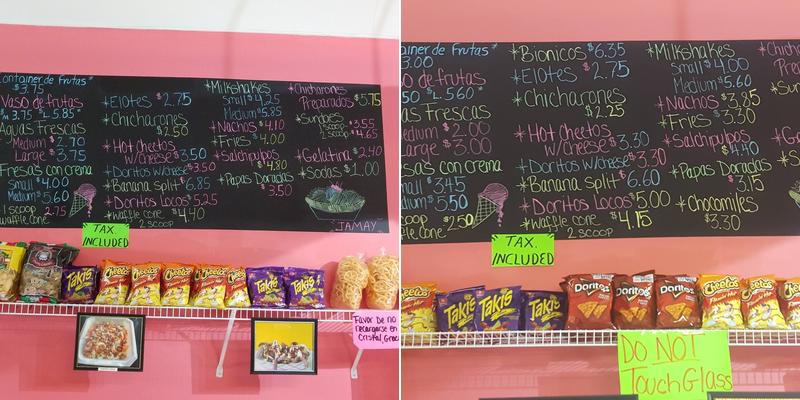 Container de Frutas
$3.75
Vaso de frutas
M 3.75 L 5.85
Aguas Frescas
Medium $2.70
Large $3.75
Fresas con crema
Small $4.00
Medium $5.60
1 scoop
waffle cone 2.75
*Elotes $2.75
*Chicharones
$2.50
*Hot Cheetos
w/Cheese $3.50
*Doritos w/cheese $3.50
*Banana Split $6.85
*Doritos Locos $5.25
*Waffle cone $4.40
2 SCOOP
*Milkshakes
Small $4.25
Medium $5.85
*Nachos $4.10
*Fries $4.00
*Salchipulpos
$4.80
*Papas Doradas
$3.50
*Chicharones
Preparados $5.75
*Sundaes
1 scoop $3.55
2 scoop $4.65
*Gelatina $2.40
*Sodas $1.00
JAMAY
TAX.
INCLUDED
Takis
Cheetos
Cheetos
Cheetos
Cheetos
Cheetos
Takis
Takis
Favor de no
recargarse en
Cristal,
ainer de Frutas
3.00
so de frutas
50 L.5.60
as Frescas
edium $2.00
arge $3.00
esas con crema
mall $3.45
edium $5.50
scoop
le Cone $2.50
*Bionicos $6.35
*Elotes $2.75
*Chicharones
$2.25
*Hot Cheetos
w/Cheese $3.30
*Doritos w/cheese $3.30
*Banana Split $6.60
*Doritos Locos $5.00
*Waffle cone $4.15
2 SCOOP
*Milkshakes
Small $4.00
Medium $5.60
*Nachos $3.85
*Fries $3.30
*Salchipulpos
$4.40
*Papas Doradas
$3.15
*Chocomiles
$3.30
TAX.
INCLUDED
Cheetos
Takis
Takis
Takis
Doritos
Doritos
Doritos
Cheetos
Cheetos
DO NOT
Touch Glass